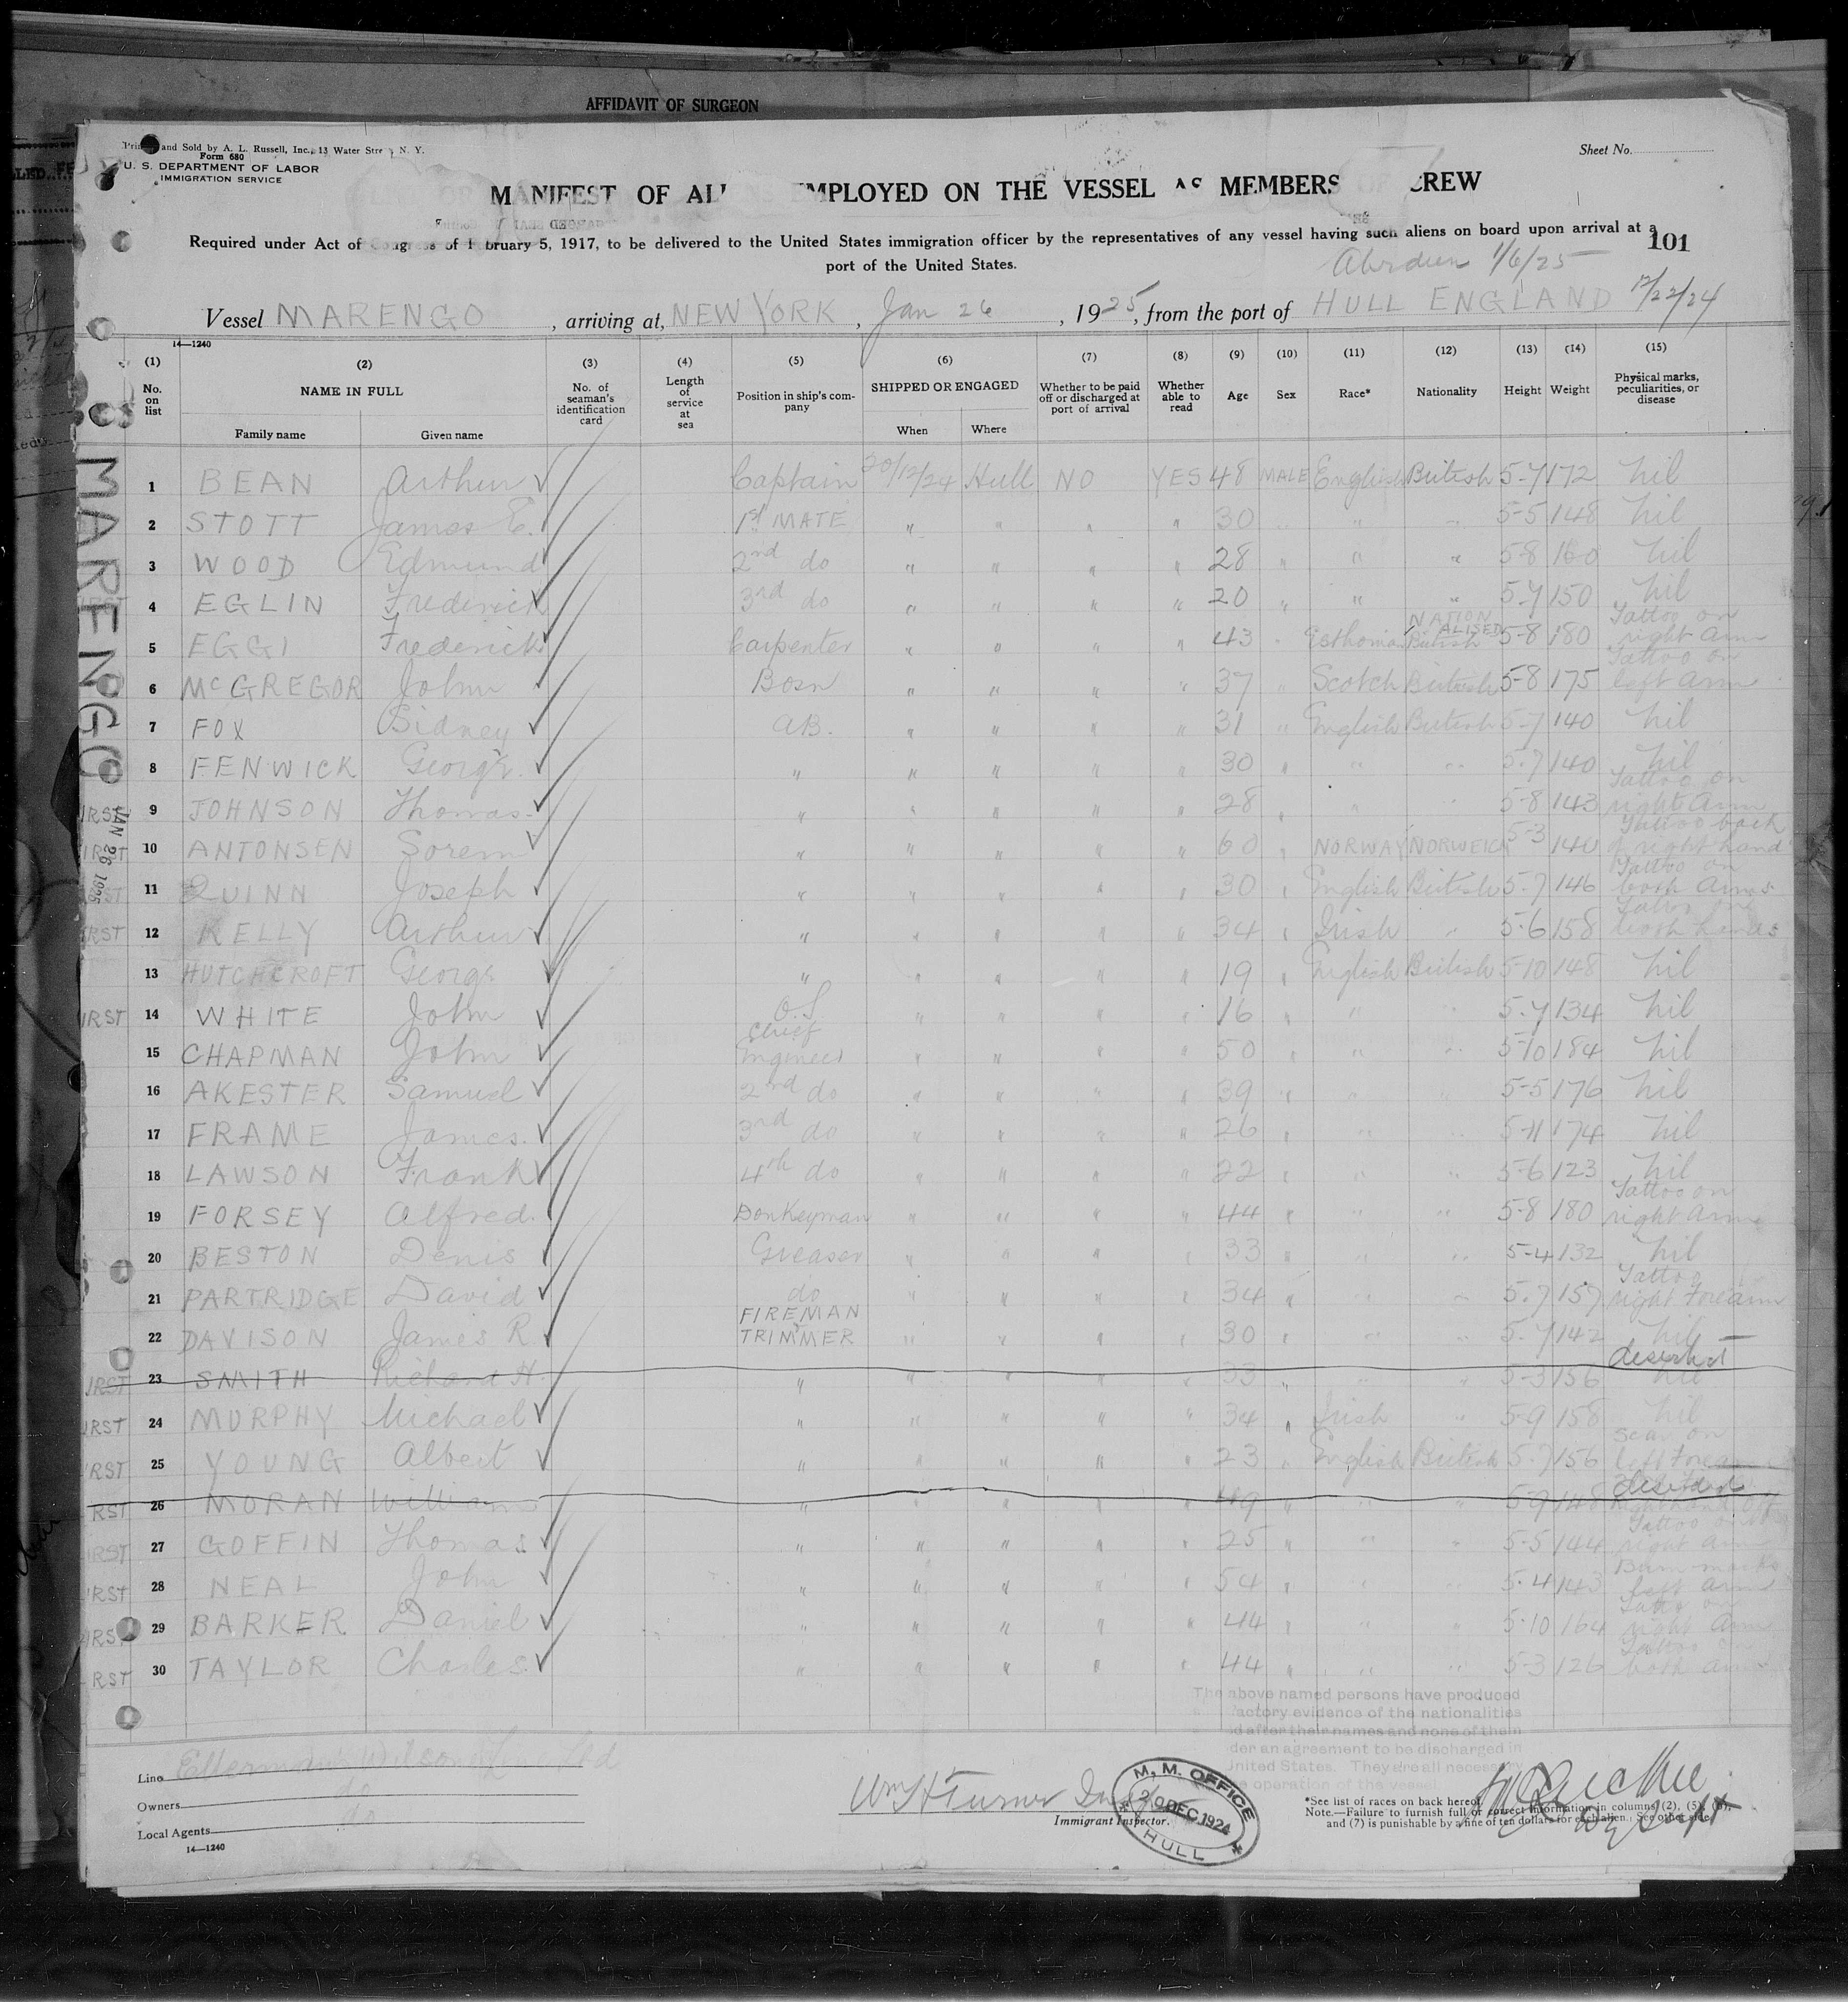 AFFIDAVIT OF SURGEON
and Sold by A. L. Russell, Inc., 13 Water N. Y.
Form 680
U. S. DEPARTMENT OF LABOR
IMMIGRATION SERVICE
Sheet No.
MANIFEST OF EMPLOYED ON THE VESSEL AS MEMBERS OF CREW
Required under Act of Congress of February 5, 1917, to be delivered to the United States immigration officer by the representatives of any vessel having such aliens on board upon arrival at a
port of the United States.
101
Aberdeen 1/6/25
Vessel MARENGO, arriving at, NEW YORK, Jan 26, 1925, from the port of HULL ENGLAND 12/22/24
14—1240
(1) (2) (3) (4) (5) (6) (7) (8) (9) (10) (11) (12) (13) (14) (15)
No. on list
NAME IN FULL
Family name Given name
No. of seaman's identification card
Length of service at sea
Position in ship's company
SHIPPED OR ENGAGED
When Where
Whether to be paid off or discharged at port of arrival
Whether able to read
Age Sex Race* Nationality Height Weight
Physical marks, peculiarities, or disease
MARENGO
JAN 26 1925
1 BEAN Arthur Captain 20/12/24 Hull NO YES 48 MALE English British 5-7 172 nil
2 STOTT James E. 1st MATE " " " " 30 " " " 5-5 148 nil
3 WOOD Edmund 2nd do " " " " 28 " " " 5-8 160 nil
4 EGLIN Frederick 3rd do " " " " 20 " " " 5-7 150 nil
5 EGGI Frederick Carpenter " " " " 43 " Esthonian NATIONALISED British 5-8 180 Tattoo on right arm
6 McGREGOR John Bosn " " " " 37 " Scotch British 5-8 175 Tattoo on left arm
7 FOX Sidney AB. " " " " 31 " English British 5-7 140 nil
8 FENWICK George " " " " " 30 " " " 5-7 140 nil
9 JOHNSON Thomas " " " " " 28 " " " 5-8 143 Tattoo on right arm
10 ANTONSEN Sorem " " " " " 60 " NORWAY NORWEIGN 5-3 140 Tattoo back of right hand
11 QUINN Joseph " " " " " 30 " English British 5-7 146 Tattoo on both arms
12 KELLY Arthur " " " " " 34 " Irish " 5-6 158 Tattoo on both hands
13 HUTCHCROFT George " " " " " 19 " English British 5-10 148 nil
14 WHITE John O.S " " " " 16 " " " 5-7 134 nil
15 CHAPMAN John Chief Engineer " " " " 50 " " " 5-10 184 nil
16 AKESTER Samuel 2nd do " " " " 39 " " " 5-5 176 nil
17 FRAME James 3rd do " " " " 26 " " " 5-11 174 nil
18 LAWSON Frank 4th do " " " " 22 " " " 5-6 123 nil
19 FORSEY Alfred Donkeyman " " " " 44 " " " 5-8 180 Tattoo on right arm
20 BESTON Denis Greaser " " " " 33 " " " 5-4 132 nil
21 PARTRIDGE David do " " " " 34 " " " 5-7 157 Tattoo right forearm
22 DAVISON James R FIREMAN TRIMMER " " " " 30 " " " 5-7 142 nil
23 SMITH Richard H. " " " " " 33 " " " 5-3 156 nil deserted
24 MURPHY Michael " " " " " 34 " Irish " 5-9 158 nil
25 YOUNG Albert " " " " " 23 " English British 5-7 156 scar on left forearm
26 MORAN William " " " " " 49 " " " 5-9 148 deserted
27 GOFFIN Thomas " " " " " 25 " " " 5-5 144 Tattoo on right arm
28 NEAL John " " " " " 54 " " " 5-4 143 Burn marks left arm
29 BARKER Daniel " " " " " 44 " " " 5-10 164 Tattoo on right arm
30 TAYLOR Charles " " " " " 44 " " " 5-3 126 Tattoo on both arms
The above named persons have produced
factory evidence of the nationalities
after their names and none of them
der an agreement to be discharged in
United States. They are all necessary
operation of the vessel.
Line Ellerman's Wilson Line Ltd
Owners do
Local Agents do
14—1240
Wm H Turner
Immigrant Inspector.
M. M. OFFICE
20 DEC 1924
HULL
*See list of races on back hereof.
Note.—Failure to furnish full or correct information in columns (2), (5), (6),
and (7) is punishable by a fine of ten dollars for each alien. See other side.